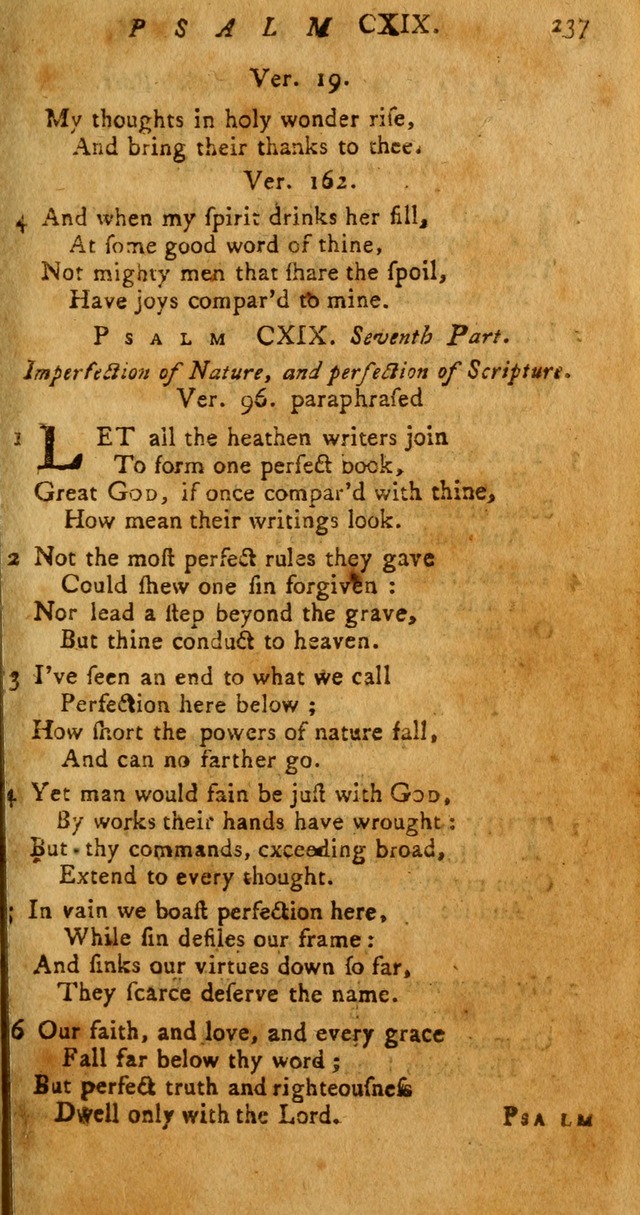 PSALM CXIX. 237
Ver. 19.
My thoughts in holy wonder riſe,
And bring their thanks to thee.
Ver. 162.
4 And when my ſpirit drinks her fill,
At ſome good word of thine,
Not mighty men that ſhare the ſpoil,
Have joys compar'd to mine.
PSALM CXIX. Seventh Part.
Imperfection of Nature, and perfection of Scripture.
Ver. 96. paraphraſed
1 LET all the heathen writers join
To form one perfect book,
Great GOD, if once compar'd with thine,
How mean their writings look.
2 Not the moſt perfect rules they gave
Could ſhew one ſin forgiven :
Nor lead a ſtep beyond the grave,
But thine conduct to heaven.
3 I've ſeen an end to what we call
Perfection here below ;
How ſhort the powers of nature fall,
And can no farther go.
4 Yet man would fain be juſt with GOD,
By works their hands have wrought :
But thy commands, exceeding broad,
Extend to every thought.
5 In vain we boaſt perfection here,
While ſin defiles our frame :
And ſinks our virtues down ſo far,
They ſcarce deſerve the name.
6 Our faith, and love, and every grace
Fall far below thy word ;
But perfect truth and righteouſneſs
Dwell only with the Lord.
PSALM